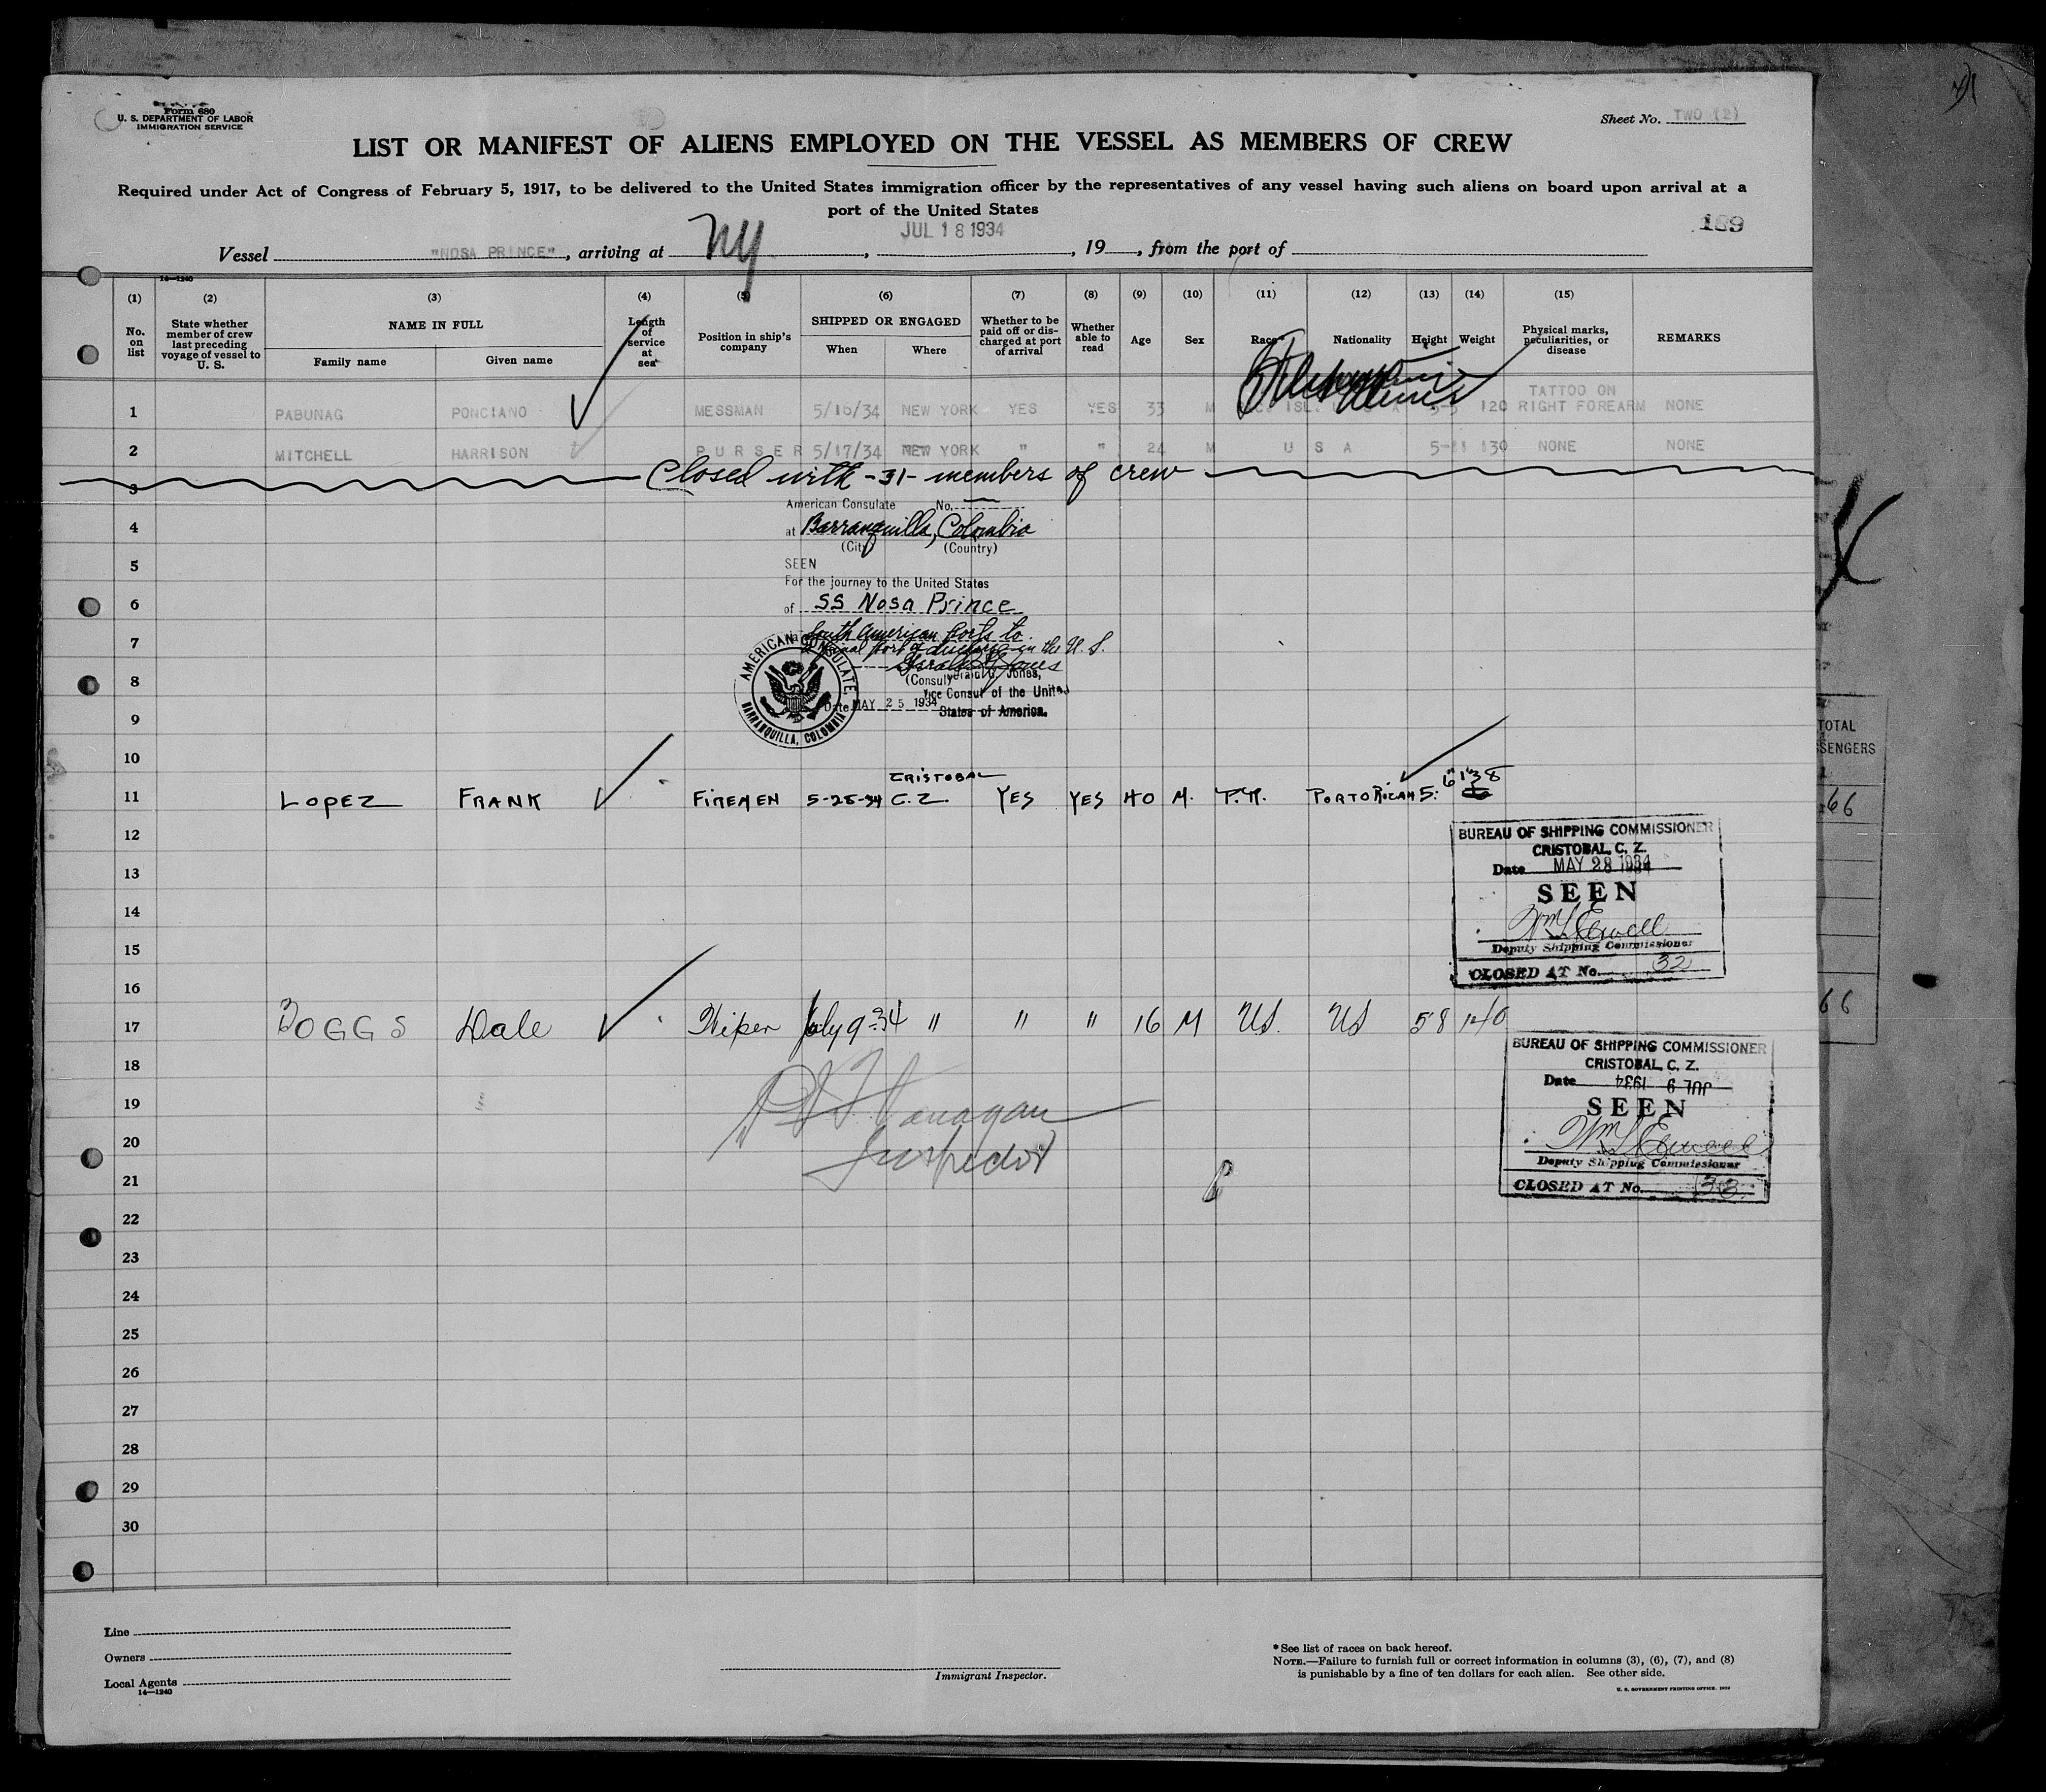 Form 680
U. S. DEPARTMENT OF LABOR
IMMIGRATION SERVICE
Sheet No. TWO (2)
LIST OR MANIFEST OF ALIENS EMPLOYED ON THE VESSEL AS MEMBERS OF CREW
Required under Act of Congress of February 5, 1917, to be delivered to the United States immigration officer by the representatives of any vessel having such aliens on board upon arrival at a
port of the United States
189
Vessel "NOSA PRINCE", arriving at NY, JUL 18 1934, 19, from the port of
14—1240
(1) (2) (3) (4) (5) (6) (7) (8) (9) (10) (11) (12) (13) (14) (15)
No. on list
State whether member of crew last preceding voyage of vessel to U. S.
NAME IN FULL
Family name Given name
Length of service at sea
Position in ship's company
SHIPPED OR ENGAGED
When Where
Whether to be paid off or discharged at port of arrival
Whether able to read
Age Sex Race* Nationality Height Weight
Physical marks, peculiarities, or disease
REMARKS
1 PABUNAG PONCIANO MESSMAN 5/16/34 NEW YORK YES YES 33 M ISL. 5-5 120 TATTOO ON RIGHT FOREARM NONE
2 MITCHELL HARRISON PURSER 5/17/34 NEW YORK " " 24 M U S A 5-11 130 NONE NONE
Closed with -31- members of crew
3
American Consulate No.
4 at Barranquilla, Colombia
(City) (Country)
5 SEEN
For the journey to the United States
6 of SS Nosa Prince
South American Ports to
7 final port of in the U. S.
8 (Consul) Jones,
Vice Consul of the United
Date MAY 25 1934 States of America.
AMERICAN CONSULATE, BARRANQUILLA, COLOMBIA
9
10
11 LOPEZ FRANK FIREMEN 5-28-34 CRISTOBAL C.Z. YES YES 40 M. P.R. PORTO RICAN 5: 6" 138
12
13
14
15
16
BUREAU OF SHIPPING COMMISSIONER
CRISTOBAL, C. Z.
Date MAY 28 1934
SEEN
Wm L Ewell
Deputy Shipping Commissioner
CLOSED AT No. 32
17 BOGGS Dale Wiper July 9-34 " " " 16 M US. US 58 140
18
19
20 Inspector
21
BUREAU OF SHIPPING COMMISSIONER
CRISTOBAL, C. Z.
Date JUL 9 1934
SEEN
Wm L Ewell
Deputy Shipping Commissioner
CLOSED AT No. 33
22
23
24
25
26
27
28
29
30
TOTAL
66
66
Line
Owners
Local Agents
14—1240
Immigrant Inspector.
*See list of races on back hereof.
NOTE.—Failure to furnish full or correct information in columns (3), (6), (7), and (8)
is punishable by a fine of ten dollars for each alien. See other side.